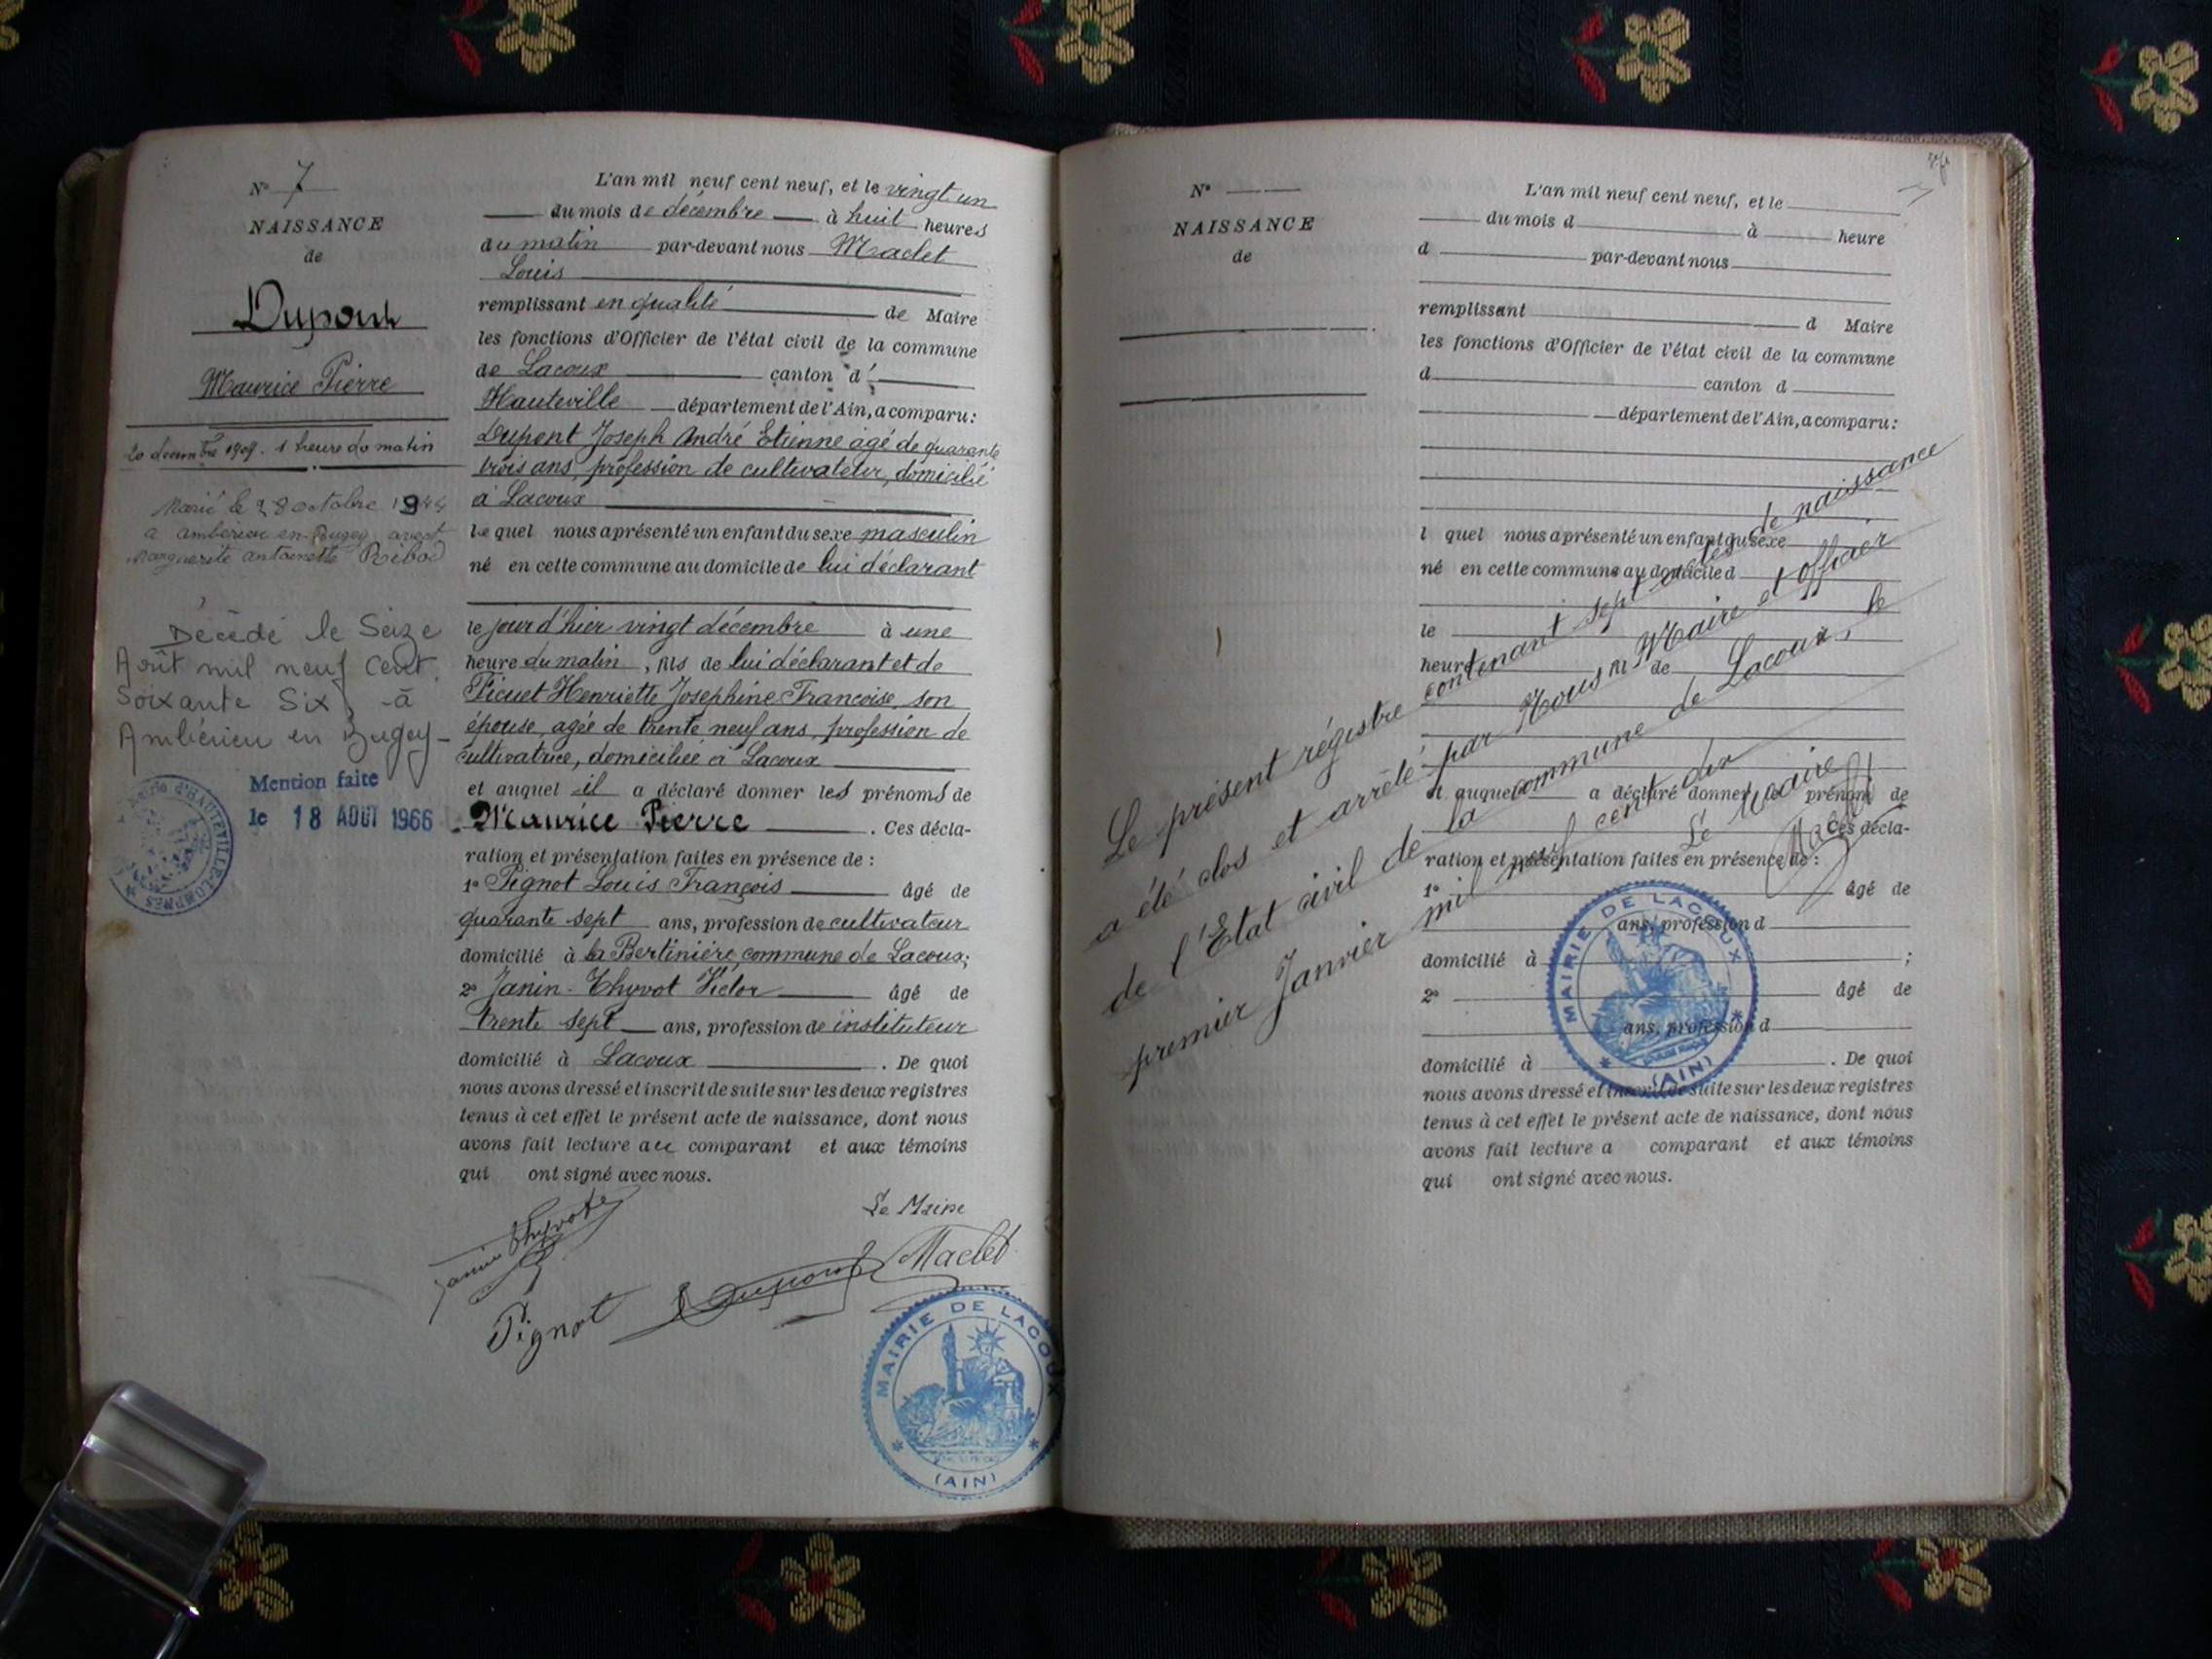 N° 7
NAISSANCE
de
Dupont
Maurice Pierre
20 décembre 1909. 1 heure du matin
Marié le 28 octobre 1944
a amberieu-en-Bugey avec
Marguerite antoinette Ribod
Décédé le Seize
Août mil neuf cent
Soixante Six à
Ambérieu en Bugey
Mention faite
le 18 AOUT 1966
Mairie d'HAUTEVILLE-LOMPNES
L'an mil neuf cent neuf, et le vingt un
du mois de décembre à huit heures
du matin par-devant nous Maclet
Louis
remplissant en qualité de Maire
les fonctions d'Officier de l'état civil de la commune
de Lacoux canton d'
Hauteville département de l'Ain, a comparu :
Dupont Joseph André Etienne agé de quarante
trois ans, profession de cultivateur, domicilié
à Lacoux
lequel nous a présenté un enfant du sexe masculin
né en cette commune au domicile de lui déclarant
le jour d'hier vingt décembre à une
heure du matin, fils de lui déclarant et de
Picuet Henriette Joséphine Françoise, son
épouse, agée de trente neuf ans, profession de
cultivatrice, domiciliée à Lacoux
et auquel il a déclaré donner les prénoms de
Maurice Pierre . Ces décla-
ration et présentation faites en présence de :
1° Pignot Louis François âgé de
quarante sept ans, profession de cultivateur
domicilié à la Bertinière, commune de Lacoux;
2° Janin-Thyvot Victor âgé de
trente sept ans, profession de instituteur
domicilié à Lacoux . De quoi
nous avons dressé et inscrit de suite sur les deux registres
tenus à cet effet le présent acte de naissance, dont nous
avons fait lecture au comparant et aux témoins
qui ont signé avec nous.
Le Maire
Janin Thyvot
Pignot Dupont Maclet
MAIRIE DE LACOUX
(AIN)
N°
NAISSANCE
de
L'an mil neuf cent neuf, et le
du mois d à heure
d par-devant nous
remplissant d Maire
les fonctions d'Officier de l'état civil de la commune
d canton d
département de l'Ain, a comparu :
l quel nous a présenté un enfant du sexe
né en cette commune au domicile d
le
heure fils de
et auquel a déclaré donner le prénom de
. Ces décla-
ration et présentation faites en présence de :
1° âgé de
ans, profession d
domicilié à ;
2° âgé de
ans, profession d
domicilié à . De quoi
nous avons dressé et inscrit de suite sur les deux registres
tenus à cet effet le présent acte de naissance, dont nous
avons fait lecture a comparant et aux témoins
qui ont signé avec nous.
Le présent régistre contenant sept actes de naissance
a été clos et arrêté par Nous Maire et officier
de l'Etat civil de la commune de Lacoux, le
premier Janvier mil neuf cent dix
Le Maire
Maclet
MAIRIE DE LACOUX
(AIN)